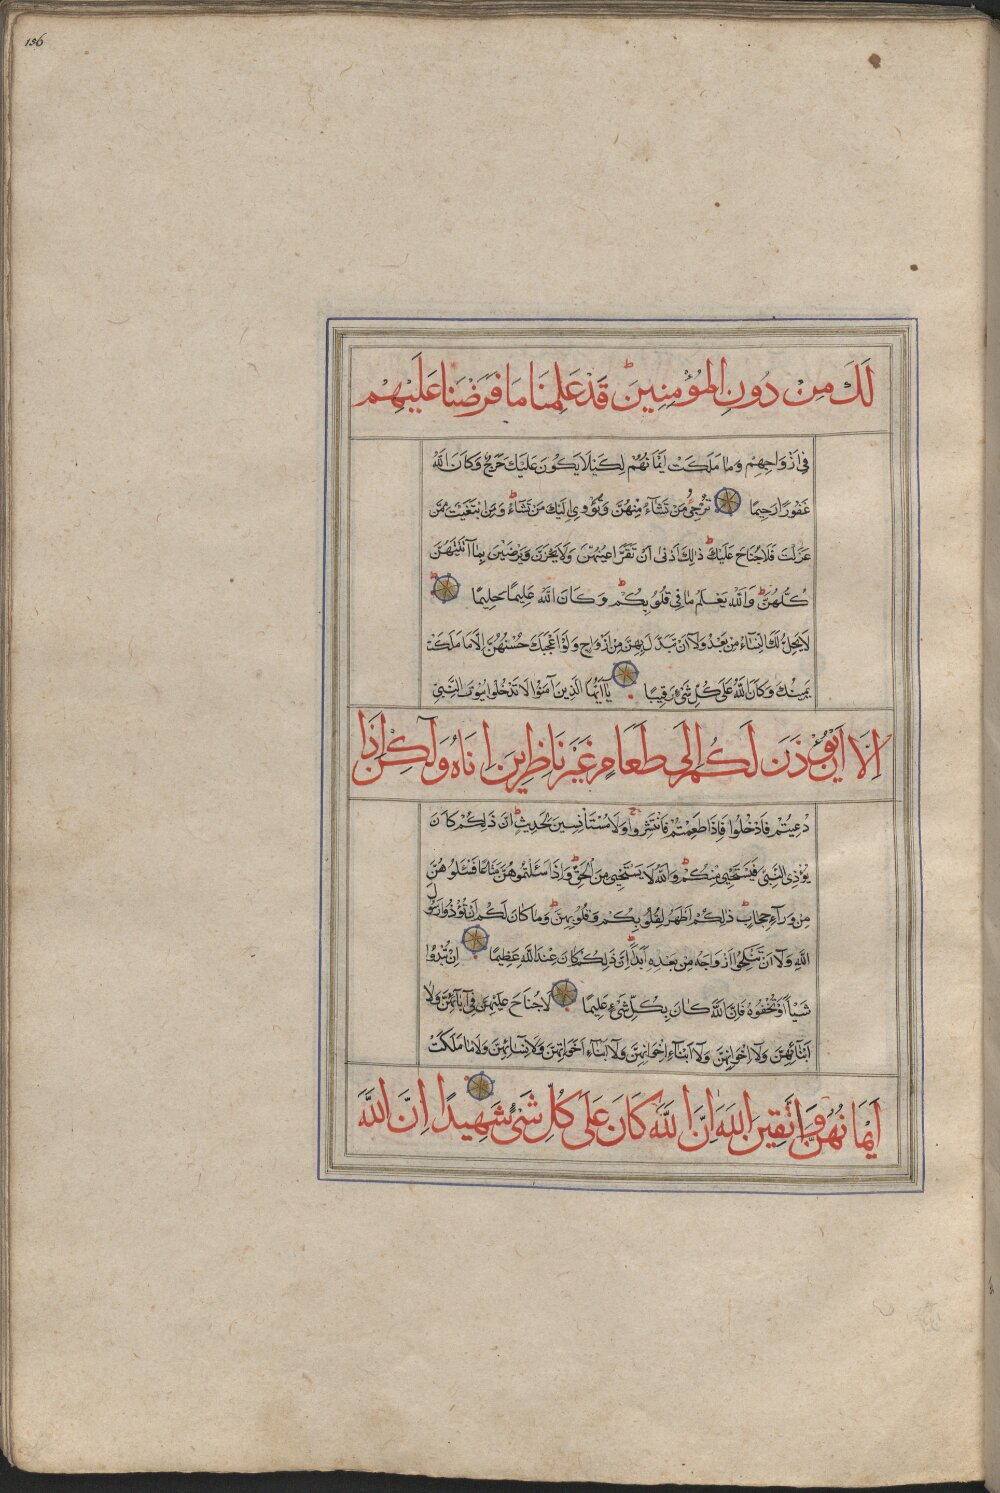 136
لَكَ مِنْ دُونِ الْمُؤْمِنِينَ قَدْ عَلِمْنَا مَا فَرَضْنَا عَلَيْهِمْ
فِي أَزْوَاجِهِمْ وَمَا مَلَكَتْ أَيْمَانُهُمْ لِكَيْلَا يَكُونَ عَلَيْكَ حَرَجٌ وَكَانَ اللَّهُ
غَفُورًا رَحِيمًا تُرْجِي مَنْ تَشَاءُ مِنْهُنَّ وَتُؤْوِي إِلَيْكَ مَنْ تَشَاءُ وَمَنِ ابْتَغَيْتَ مِمَّنْ
عَزَلْتَ فَلَا جُنَاحَ عَلَيْكَ ذَلِكَ أَدْنَى أَنْ تَقَرَّ أَعْيُنُهُنَّ وَلَا يَحْزَنَّ وَيَرْضَيْنَ بِمَا آتَيْتَهُنَّ
كُلُّهُنَّ وَاللَّهُ يَعْلَمُ مَا فِي قُلُوبِكُمْ وَكَانَ اللَّهُ عَلِيمًا حَلِيمًا
لَا يَحِلُّ لَكَ النِّسَاءُ مِنْ بَعْدُ وَلَا أَنْ تَبَدَّلَ بِهِنَّ مِنْ أَزْوَاجٍ وَلَوْ أَعْجَبَكَ حُسْنُهُنَّ إِلَّا مَا مَلَكَتْ
يَمِينُكَ وَكَانَ اللَّهُ عَلَى كُلِّ شَيْءٍ رَقِيبًا يَا أَيُّهَا الَّذِينَ آمَنُوا لَا تَدْخُلُوا بُيُوتَ النَّبِيِّ
إِلَّا أَنْ يُؤْذَنَ لَكُمْ إِلَى طَعَامٍ غَيْرَ نَاظِرِينَ إِنَاهُ وَلَكِنْ إِذَا
دُعِيتُمْ فَادْخُلُوا فَإِذَا طَعِمْتُمْ فَانْتَشِرُوا وَلَا مُسْتَأْنِسِينَ لِحَدِيثٍ إِنَّ ذَلِكُمْ كَانَ
يُؤْذِي النَّبِيَّ فَيَسْتَحْيِي مِنْكُمْ وَاللَّهُ لَا يَسْتَحْيِي مِنَ الْحَقِّ وَإِذَا سَأَلْتُمُوهُنَّ مَتَاعًا فَسْئَلُوهُنَّ
مِنْ وَرَاءِ حِجَابٍ ذَلِكُمْ أَطْهَرُ لِقُلُوبِكُمْ وَقُلُوبِهِنَّ وَمَا كَانَ لَكُمْ أَنْ تُؤْذُوا رَسُولَ
اللَّهِ وَلَا أَنْ تَنْكِحُوا أَزْوَاجَهُ مِنْ بَعْدِهِ أَبَدًا إِنَّ ذَلِكُمْ كَانَ عِنْدَ اللَّهِ عَظِيمًا إِنْ تُبْدُوا
شَيْئًا أَوْ تُخْفُوهُ فَإِنَّ اللَّهَ كَانَ بِكُلِّ شَيْءٍ عَلِيمًا لَا جُنَاحَ عَلَيْهِنَّ فِي آبَائِهِنَّ وَلَا
أَبْنَائِهِنَّ وَلَا إِخْوَانِهِنَّ وَلَا أَبْنَاءِ إِخْوَانِهِنَّ وَلَا أَبْنَاءِ أَخَوَاتِهِنَّ وَلَا نِسَائِهِنَّ وَلَا مَا مَلَكَتْ
أَيْمَانُهُنَّ وَاتَّقِينَ اللَّهَ إِنَّ اللَّهَ كَانَ عَلَى كُلِّ شَيْءٍ شَهِيدًا إِنَّ اللَّهَ